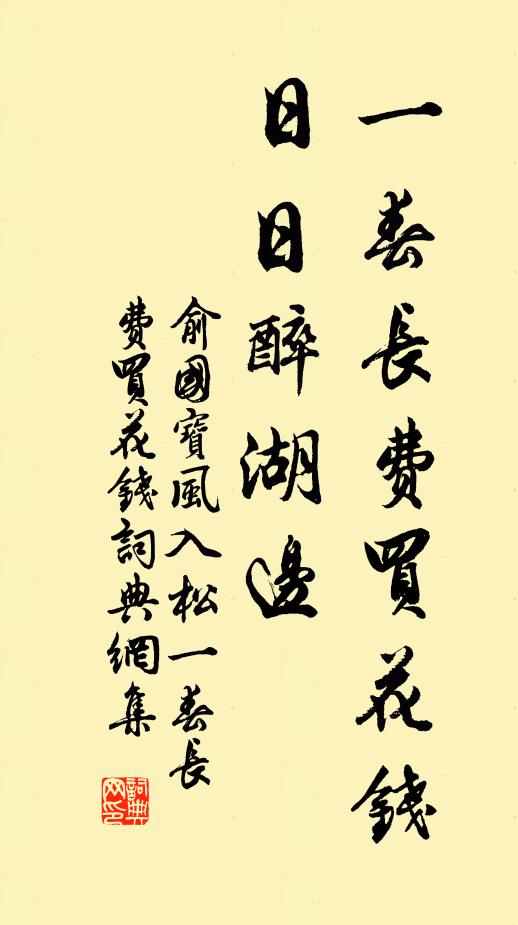 一春長費買花錢
日日醉湖邊
俞國寶風入松一春長
費買花錢詞典網集
詞典
网印